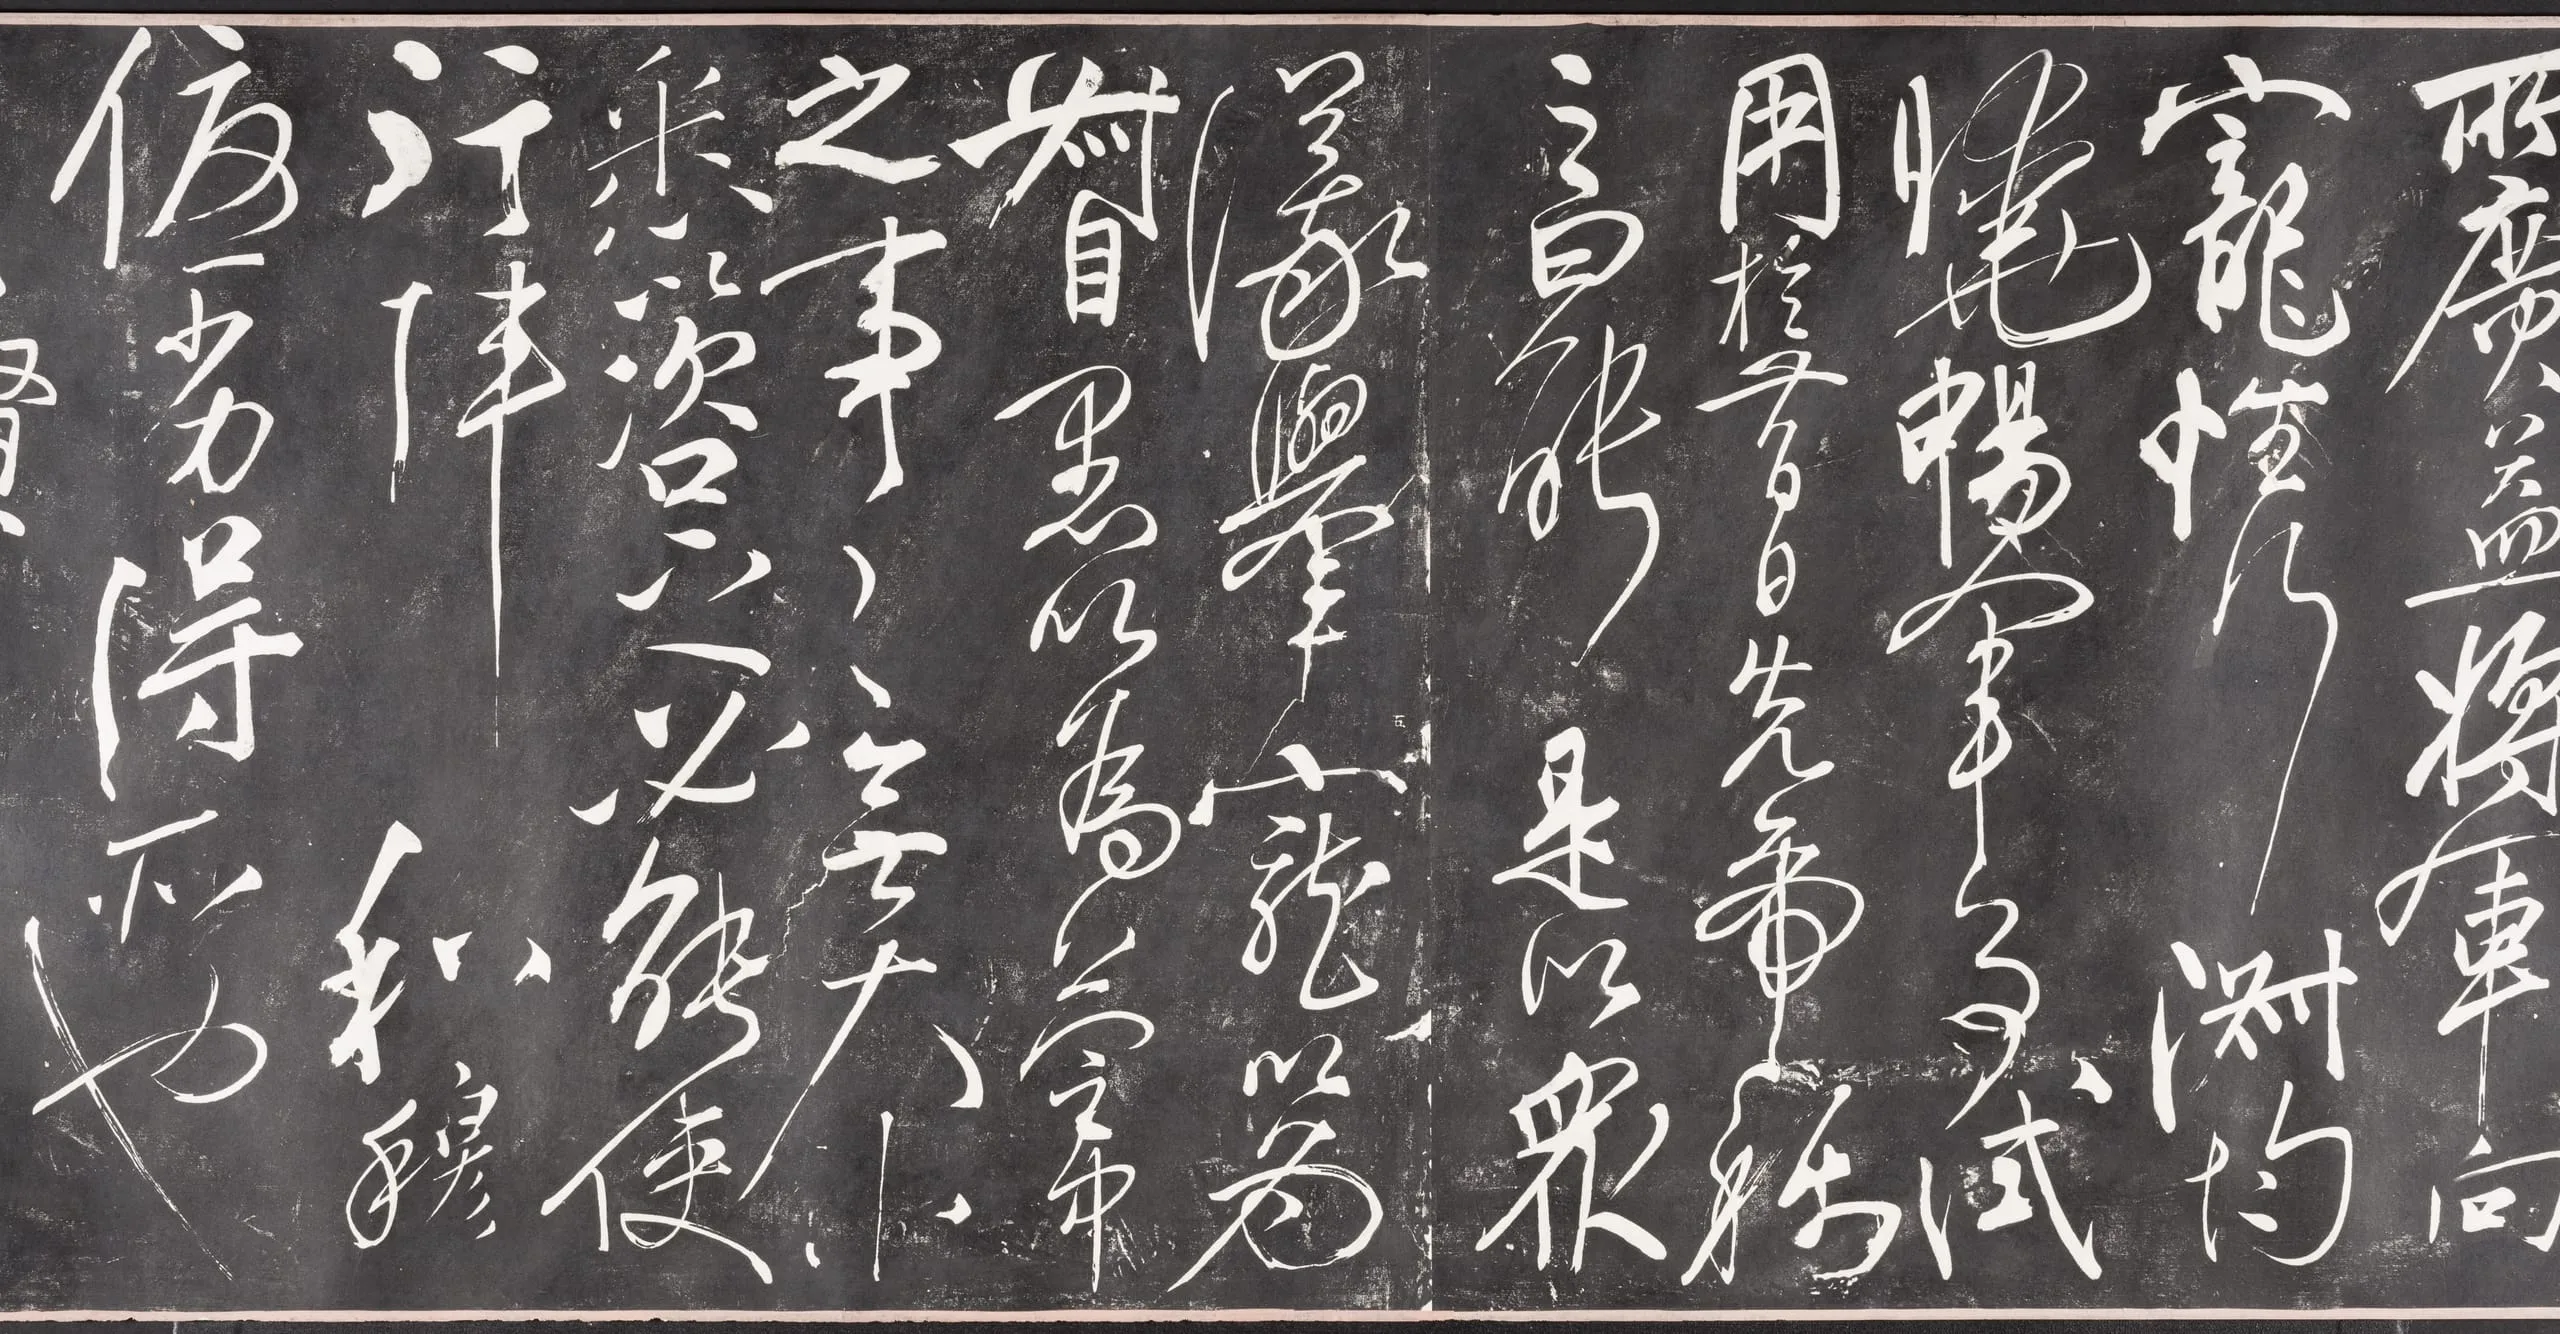 所廣益將軍向
寵性行淑均
曉暢軍事試
用於昔日先帝稱
之曰能是以眾
議舉寵以為
督愚以為營中
之事〻無大小
悉以咨之必能使
行陣和穆
優劣得所也
賢